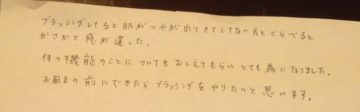 ブラッシングしてると肌がつやが出てきてしてない方とくらべると
がさがさ感が違った。
体の機能のことについてもおしえてもらいとても為になりました。
お風呂の前にできたらブラッシングをやりたいと思います。